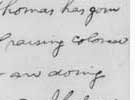 Thomas has gone
raising colored
are doing